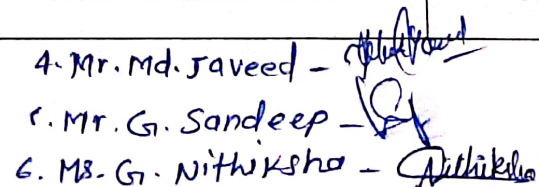 4. Mr. Md. Javeed -
5. Mr. G. Sandeep -
6. Ms. G. Nithiksha - Nithiksha